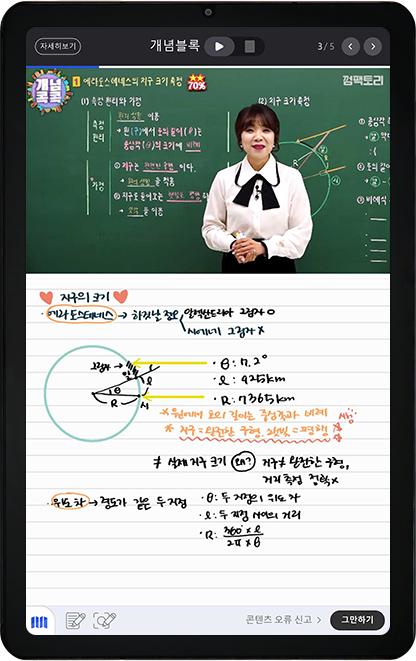 자세히보기
개념블록
3 / 5
개념
콕콕
1 에라토스테네스의 지구 크기 측정
70%
껌팩토리
(1) 측정 원리와 가정
(2) 지구 크기 측정
측정
원리
이용
→ 원(구)에서 호의 길이(ℓ)는
중심각(θ)의 크기에 비례
가정
① 지구는 이다.
② 지구로 들어오는
이용
지구의 크기
· 에라토스테네스 → 하짓날 정오
알렉산드리아 그림자 O
시에네 그림자 X
그림자
알
ℓ
θ
R
시
· θ : 7.2°
· ℓ : 925km
· R : 7365km
* 원에서 호의 길이는 중심각과 비례
* 지구 = 완전한 구형, 햇빛 = 평행
≠ 실제 지구 크기 왜? 지구 ≠ 완전한 구형,
거리 측정 정확 X
· 위도차 → 경도가 같은 두 지점
· θ : 두 지점의 위도 차
· ℓ : 두 지점 사이의 거리
· R : 360° × ℓ
2π × θ
콘텐츠 오류 신고 >
그만하기